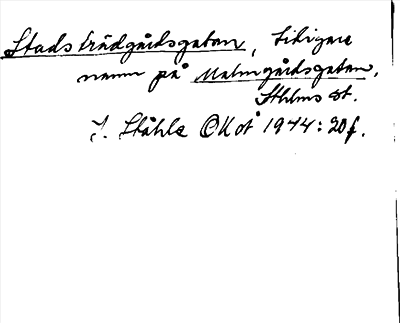 Stadsträdgårdsgatan, tidigare
namn på Malmgårdsgatan,
Sthlms st.
I. Ståhle OKot 1944: 20 f.